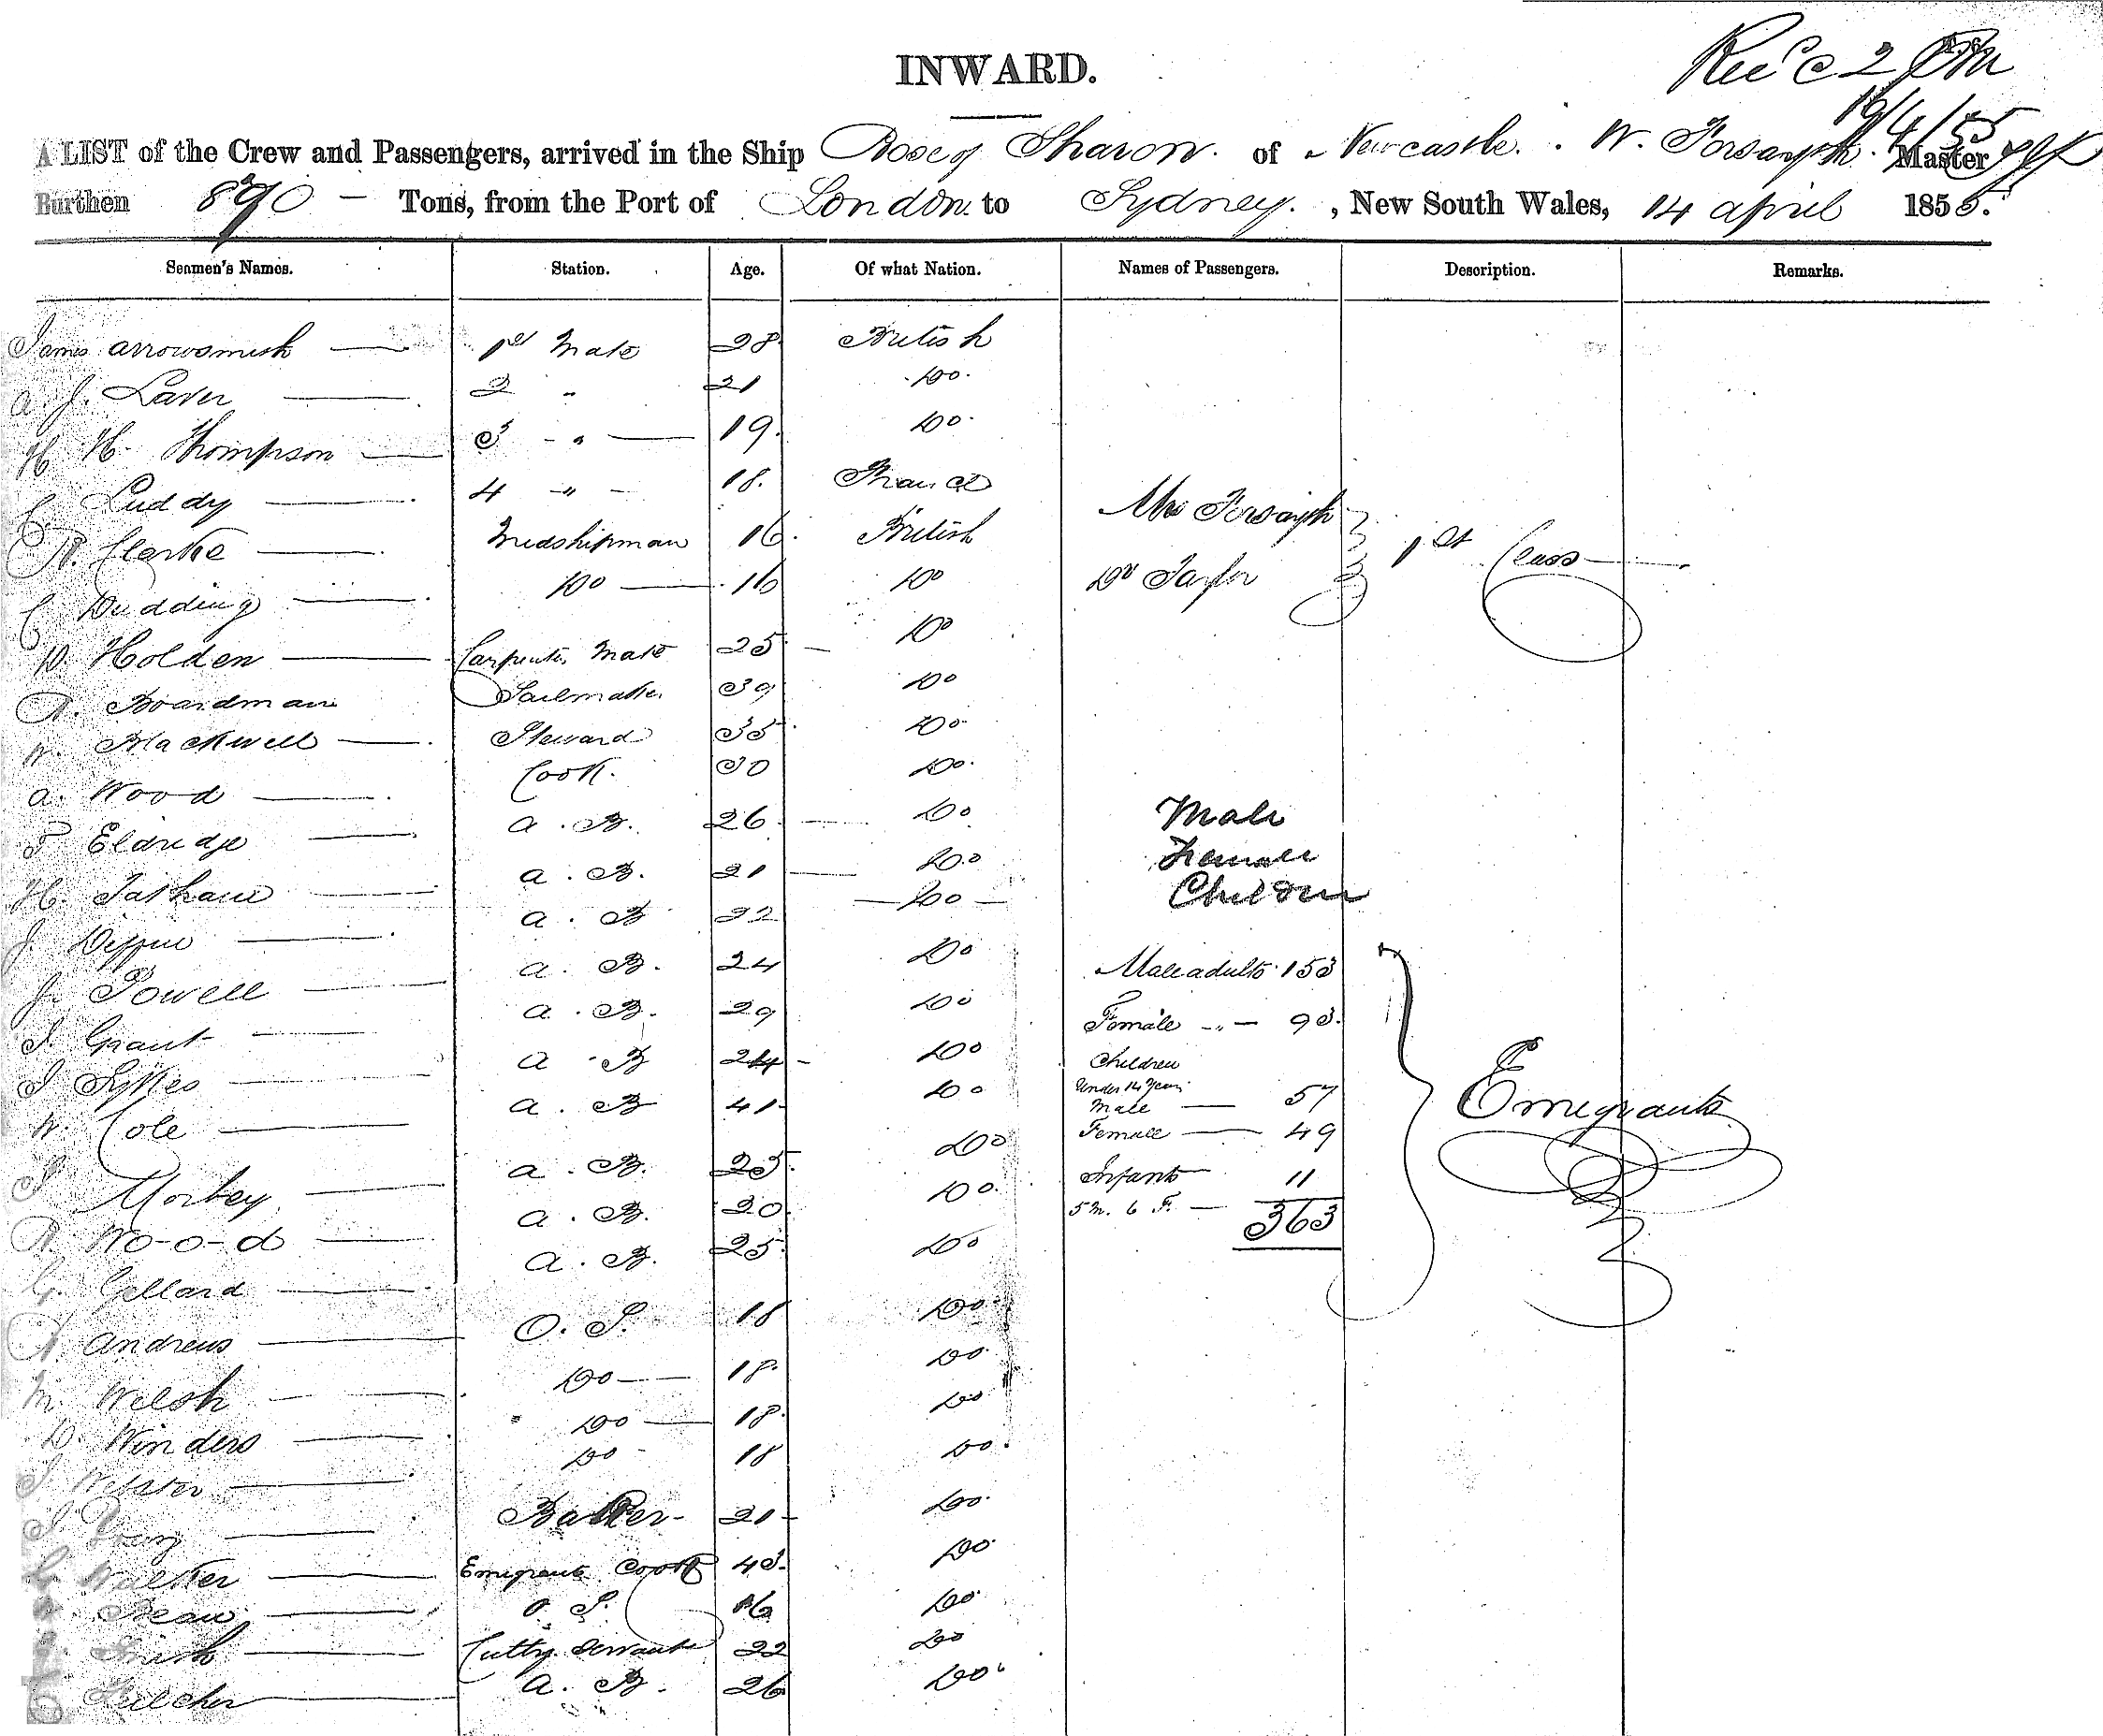 INWARD.
A LIST of the Crew and Passengers, arrived in the Ship Rose of Sharon. of Newcastle. W. Forsayth. Master
Burthen 890 — Tons, from the Port of London to Sydney. , New South Wales, 14 april 1855.
Seamen's Names. Station. Age. Of what Nation. Names of Passengers. Description. Remarks.
James arrowsmith — 1st Mate 28 British
a. J. Laver — 2 " 21 Do.
H. H. Thompson — 3 - " — 19. Do.
C. Luddy — 4 " - 18. France
R. Clarke — Midshipman 16. British
C Dudding — Do — 16 Do
D. Holden — Carpenter Mate 25 — Do
R. Boardman Sailmaker 39 Do
W. Blackwell — Steward 35 Do.
a. Wood — Cook. 30 Do.
T Eldridge — a. B. 26 — Do
H. — a. B. 21 — Do
J. — a. B 22 — Do —
J. Powell — a. B. 24 Do
J. Grant — a. B. 29 Do
J Sykes — a. B 24 - Do
W. Cole — a. B 41 Do
J Morbey — a. B. 25. Do
R. Wo-o-d — a. B. 20 Do.
G. Gellard — a. B. 25 Do
R. andrews — O. S. 18 Do
M. Welsh — Do — 18. Do
D. Winders — Do — 18. Do
J. Webster — Do 18 Do
J. Young — Baker - 21 - Do.
Walker — Emigrant Cook 43. Do.
Bean — O. S. 16 Do
Smith — Cutty Servant 22 Do
Fulcher — a. B. 26 Do
Mrs Forsayth
Dr Taylor
1st Class
Male
Female
Children
Male adults 153
Female " — 93.
Children
Under 14 Years
Male — 57
Female — 49
Infants 11
5 M. 6 F. — 363
Emigrants